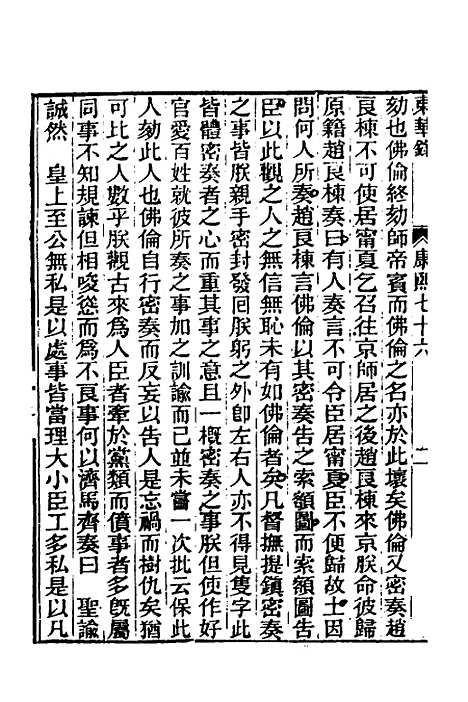 東華錄
康熙七十六
二
劾也佛倫終劾師帝賓而佛倫之名亦於此壞矣佛倫又密奏趙
良棟不可使居甯夏乞召往京師居之後趙良棟來京朕命彼歸
原籍趙良棟奏曰有人奏言不可令臣居甯夏臣不便歸故土因
問何人所奏趙良棟言佛倫以其密奏告之索額圖而索額圖告
臣以此觀之人之無信無恥未有如佛倫者矣凡督撫提鎮密奏
之事皆朕親手密封發回朕躬之外卽左右人亦不得見隻字此
皆體密奏者之心而重其事之意且一概密奏之事朕但使作好
官愛百姓就彼所奏之事加之訓諭而已並未嘗一次批云保此
人劾此人也佛倫自行密奏而反妄以告人是忘禍而樹仇矣猶
可比之人數乎朕觀古來爲人臣者牽於黨類而僨事者多旣屬
同事不知規諫但相唆慫而爲不良事何以濟馬齊奏曰　聖諭
誠然　皇上至公無私是以處事皆當理大小臣工多私是以凡